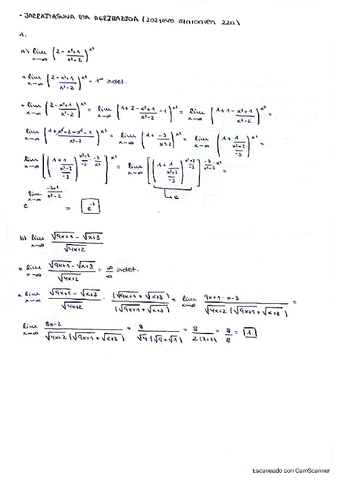 - JARRAITASUNA ETA DERIBAZIOA (2021eko ekainaren 22a)
1.
a) lim x→∞ (2 - x²+1 / x²-2)^x²
* lim x→∞ (2 - x²+1 / x²-2)^x² = 1^∞ indet.
* lim x→∞ (2 - x²+1 / x²-2)^x² = lim x→∞ [1 + 2 - x²+1 / x²-2 - 1]^x² = lim x→∞ [1 + 1 - x²+1 / x²-2]^x² =
lim x→∞ [1 + x²-2-x²-1 / x²-2]^x² = lim x→∞ [1 + -3 / x²-2]^x² = lim x→∞ [1 + 1 / (x²-2 / -3)]^x² =
lim x→∞ [(1 + 1 / (x²-2 / -3))^(x²-2 / -3 · -3 / x²-2)]^x² = lim x→∞ [[(1 + 1 / (x²-2 / -3))^(x²-2 / -3)]^(-3 / x²-2)]^x² =
→ e
e^(lim x→∞ -3x² / x²-2) = e⁻³
b) lim x→∞ √9x+1 - √x+3 / √4x+2
* lim x→∞ √9x+1 - √x+3 / √4x+2 = ∞/∞ indet.
* lim x→∞ √9x+1 - √x+3 / √4x+2 · (√9x+1 + √x+3) / (√9x+1 + √x+3) = lim x→∞ 9x+1-x-3 / √4x+2 (√9x+1 + √x+3) =
lim x→∞ 8x-2 / √4x+2 (√9x+1 + √x+3) = 8 / √4 (√9+√1) = 8 / 2(3+1) = 8/8 = 1
Escaneado con CamScanner